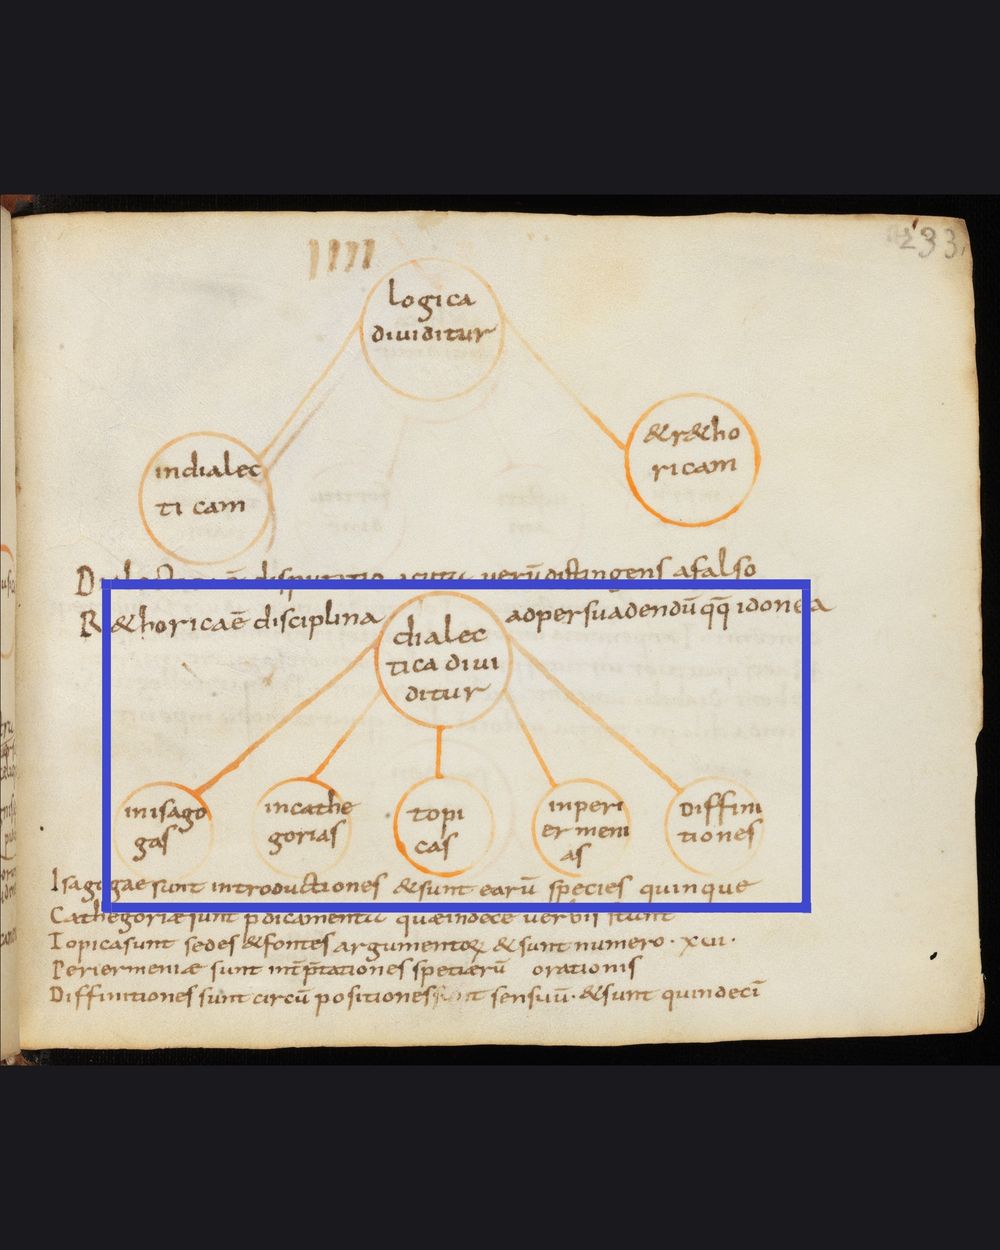 IIII
233
logica
diuiditur
indialec
ticam
&r&ho
ricam
disputatio uerū distingens afalso
R&horica ē disciplina adpersuadendū qq̄ idonea
dialec
tica diui
ditur
inisago
gas
incathe
gorias
topi
cas
inperi
ermeni
as
Diffini
tiones
Isagogae sunt introductiones &sunt earū species quinque
Cathegoriæ sunt p̄dicamenta quæ uerbii
Topicasunt sedes &fontes argumentoꝝ &sunt numero · xui ·
Periermeniæ sunt int̄p̄tationes orationis
Diffinitiones sunt circū positiones sensuū · &sunt quindecī